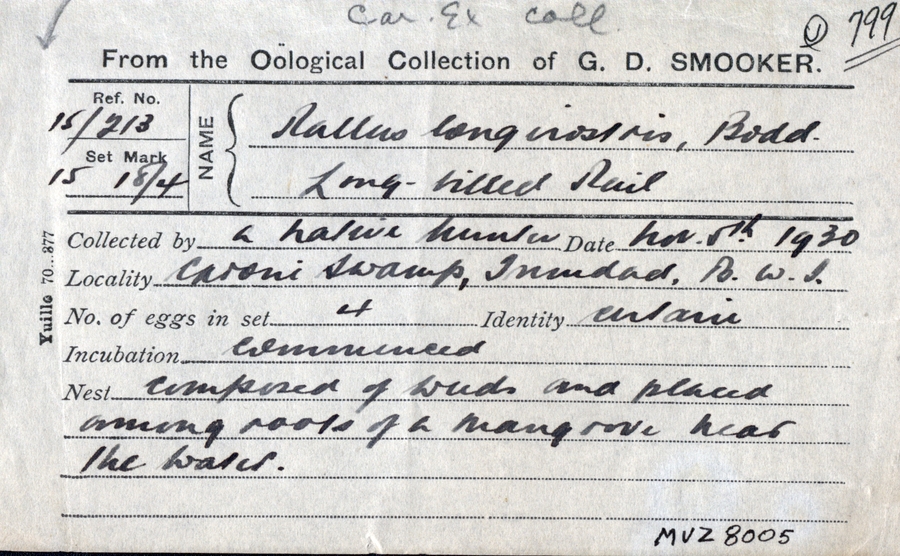 Car. Ex coll.
J 799
From the Oölogical Collection of G. D. SMOOKER.
Ref. No.
15/213
Set Mark
15 18/4
NAME
Rallus longirostris, Bodd.
Long-billed Rail
Collected by a native hunter Date Nov. 5th 1930
Locality Caroni Swamp, Trinidad, B. W. I.
No. of eggs in set 4 Identity certain
Incubation commenced
Nest composed of weeds and placed
among roots of a mangrove near
the water.
Yuille 70..877
MVZ 8005